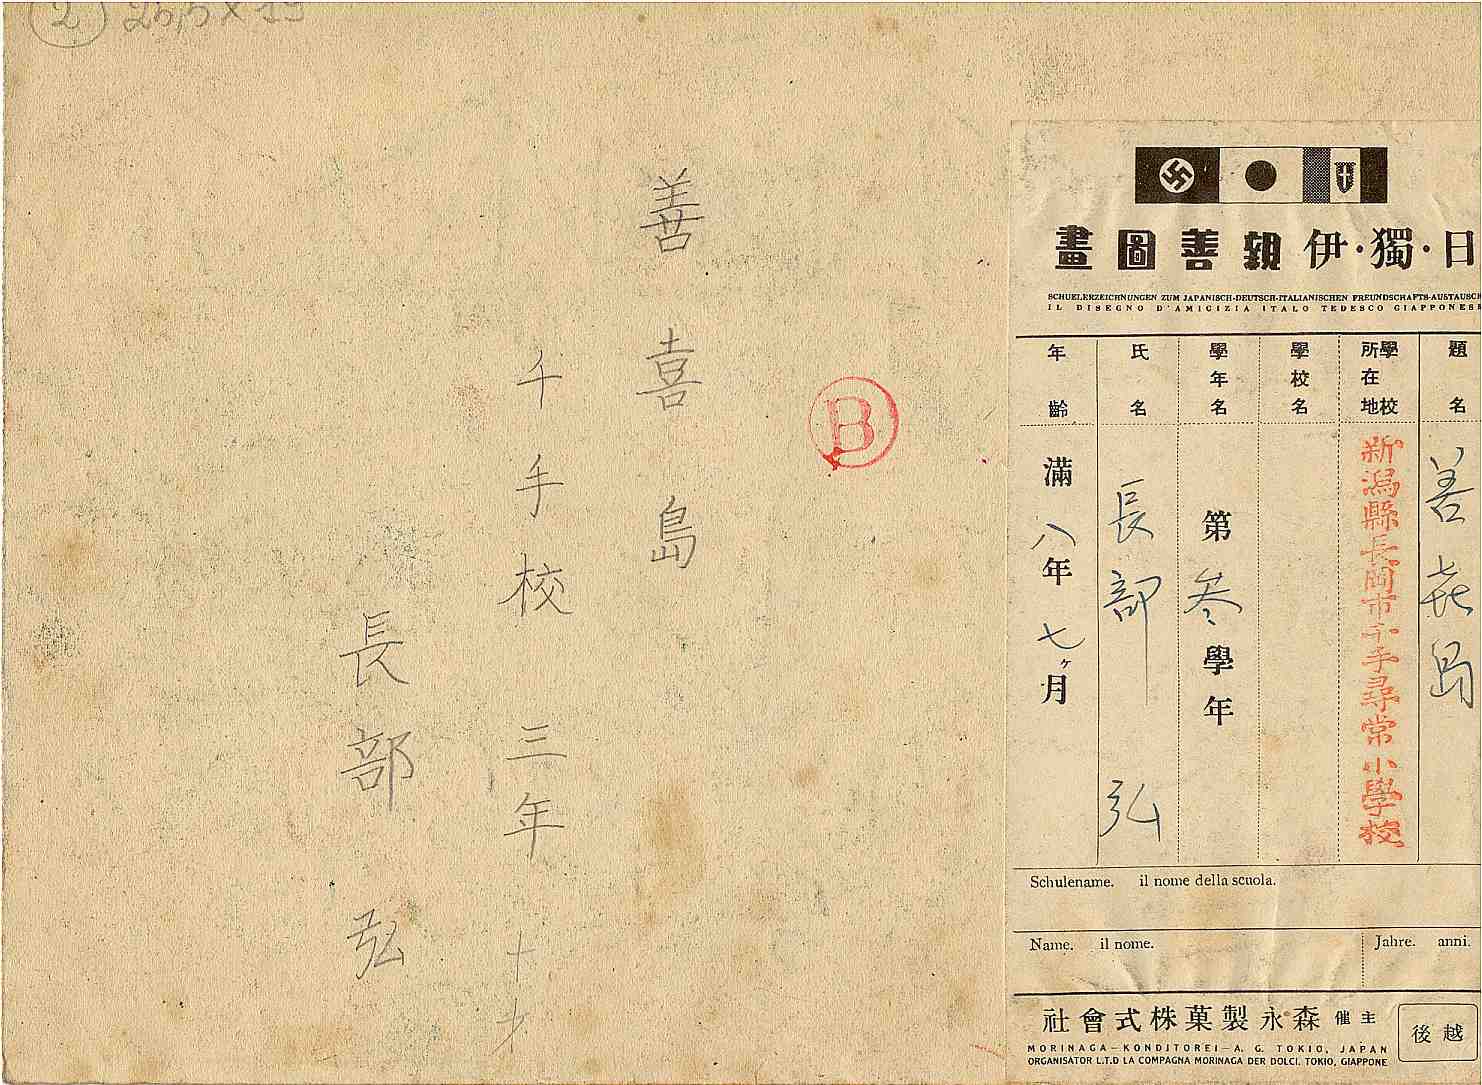 2 25,5 × 35
日・獨・伊親善圖畫
SCHUELERZEICHNUNGEN ZUM JAPANISCH-DEUTSCH-ITALIANISCHEN FREUNDSCHAFTS-AUSTAUSCH
IL DISEGNO D'AMICIZIA ITALO TEDESCO GIAPPONESE
題名 善㐂島
學校所在地 新潟縣長岡市千手尋常小學校
學校名
學年名 第参學年
氏名 長部弘
年齡 滿八年七ヶ月
Schulename. il nome della scuola.
Name. il nome.
Jahre. anni.
主催 森永製菓株式會社
MORINAGA-KONDITOREI-A. G. TOKIO, JAPAN
ORGANISATOR L.T.D LA COMPAGNA MORINAGA DER DOLCI. TOKIO, GIAPPONE
越後
B
善喜島
千手校 三年 十才
長部弘